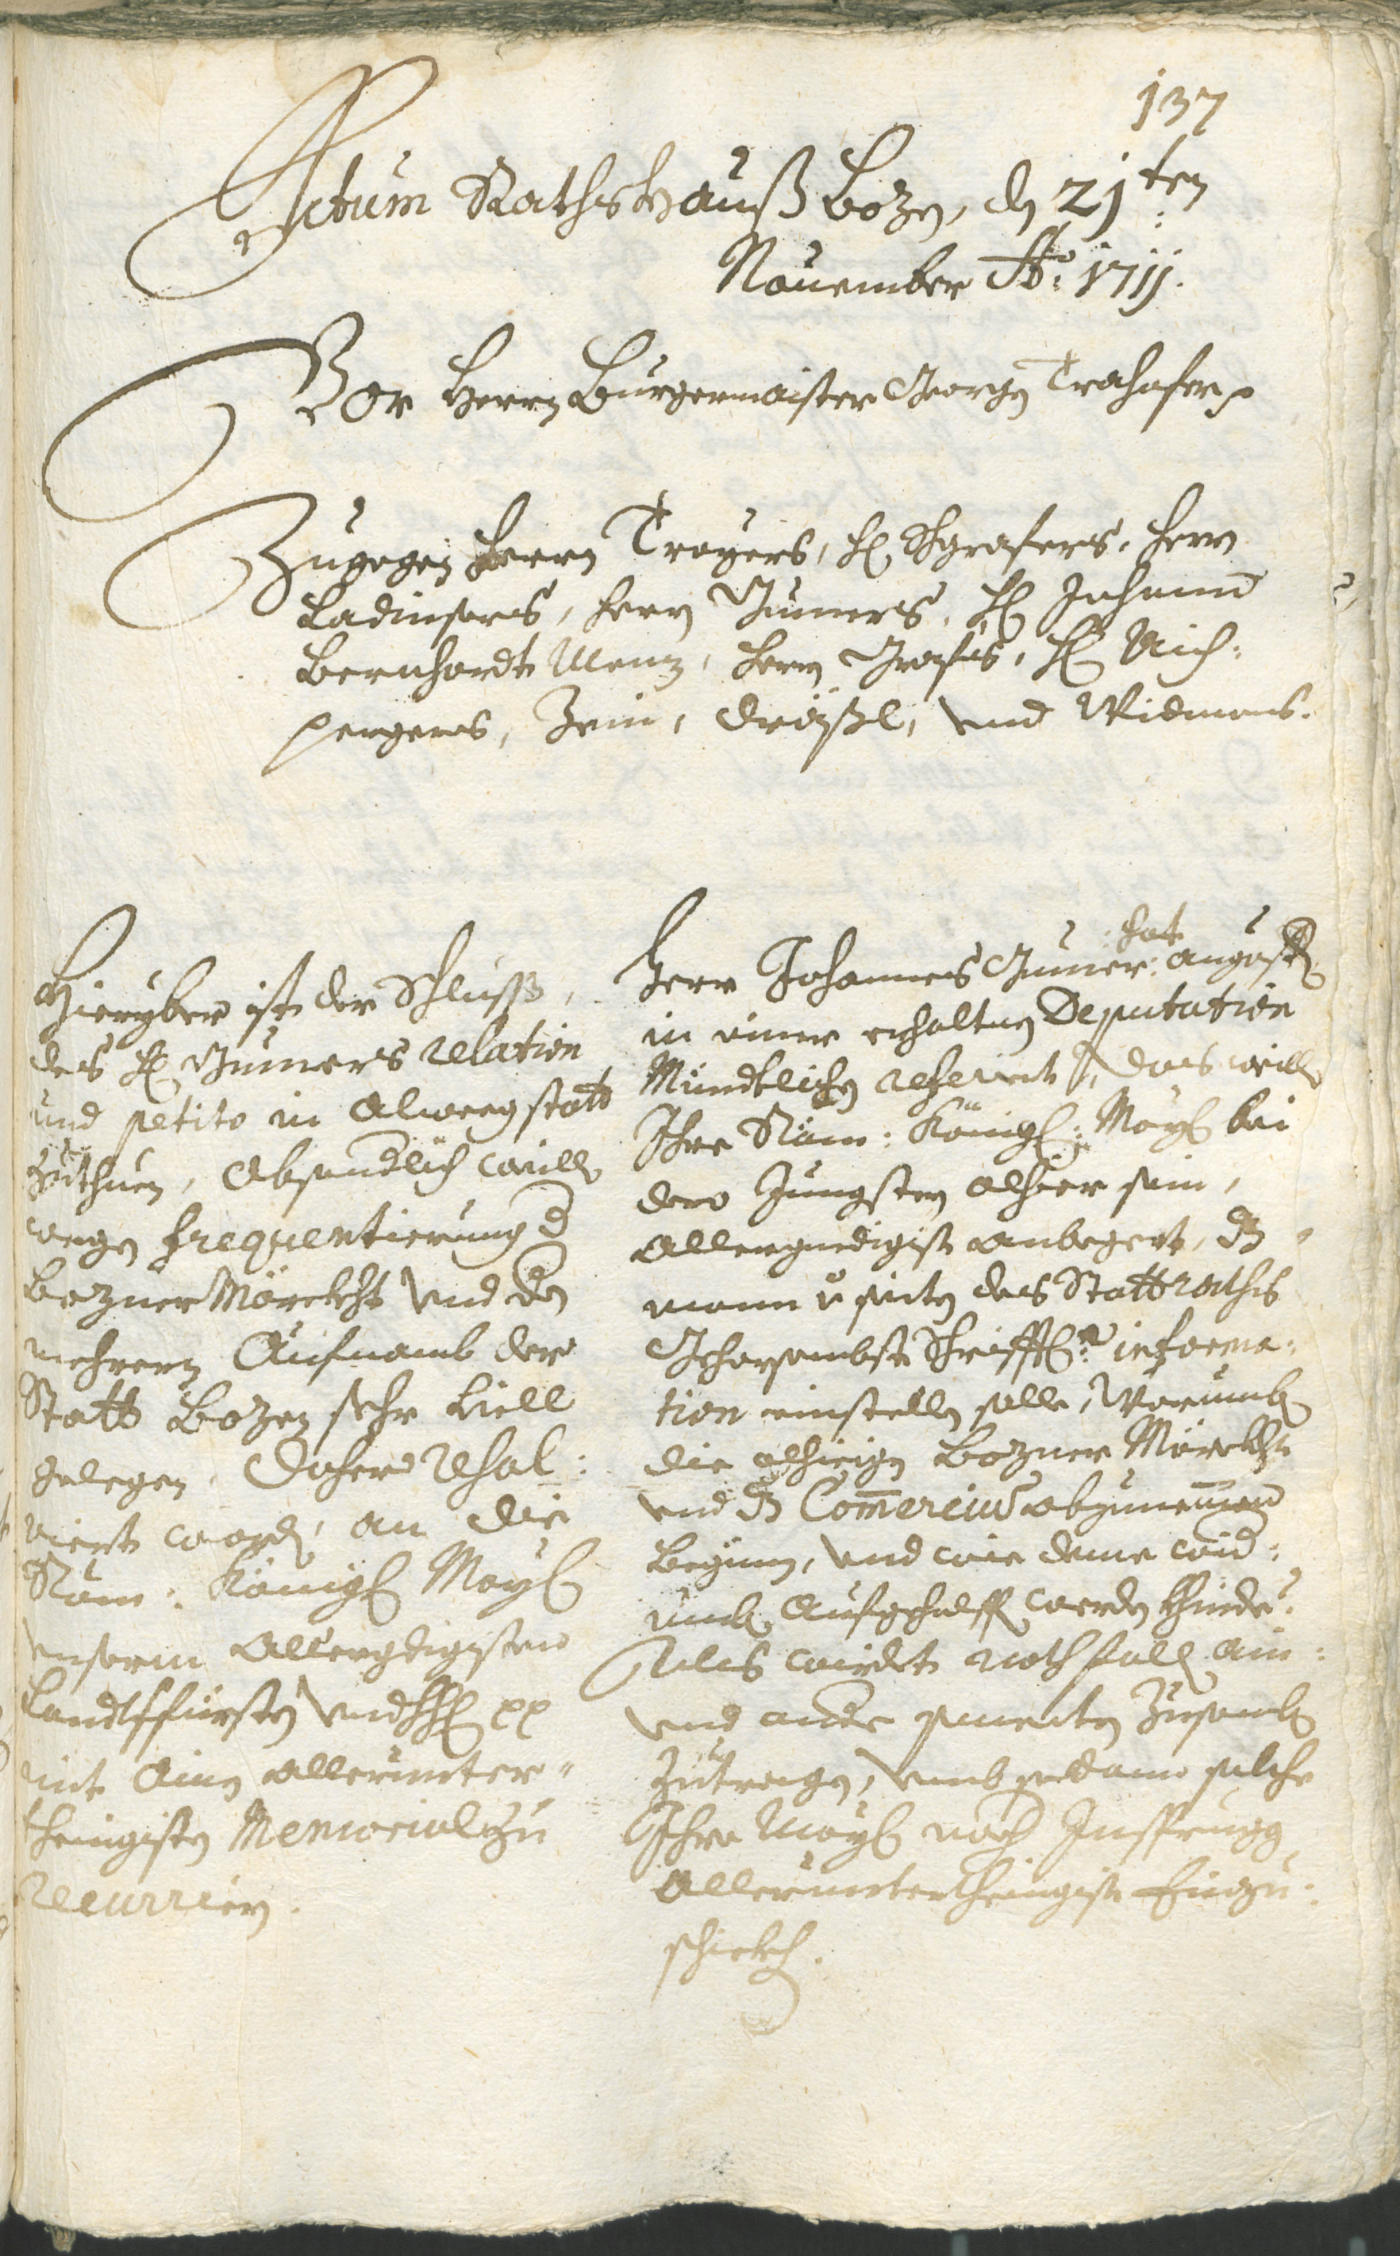 137
Actum Rathshauß Bozen, den 21ten
Nouember Ao: 1711.
Vor Herrn Burgermaister Georgen Trahofer p
Zugegen Herrn Troyers, H: Grafers, Herrn
Ladinsers, Herrn Gumers, H: Johann
Bernhardt Menz, Herrn Grafns, H: Aich:
pergers, Zein, Dräxl, vnd Widmans.
Hieryber ist der Schluss,
des H: Gumers relation
und petito in alweeg statt
zuthuen, absonderlich weillen
wegen frequentierung der
Bozner Märckht vnd den
mehrern Aufnamb der
Statt Bozen sehr viell
gelegen, Daherr Resol:
viert worden, an die
Röm: Königl: Mayl:
vnserm Allergdigisten
Landtsfürsten vnd H: pp
mit Ainen allerunter:
thenigisten Memorial zu
recurriern.
Herr Johannes Gumer: hat angestern
in einer erhaltnen Deputation
Mündtlichen referirt, das weillen
Ihre Röm: Königl: Mayl: bei
dero Jungsten alhier sein,
allergnedigist anbegert, dz
mann v: seiten des Stattraths
Gehorsambste Schrifftl: informa:
tion einstellen solle, Warumben
die alhieigen Bozner Märckht
vnd dz Commercium abzunemmen
beginnen, vnd wie deme wid:
umben Aufgeholffen werden khinde.
Alls wirdet nothfallen ain:
vnd andre puncten Zusamben
Zutragen, vmb sodann solche
Ihro Mayl: nach Insprugg
allerunterthenigist Einzu:
schickhen.